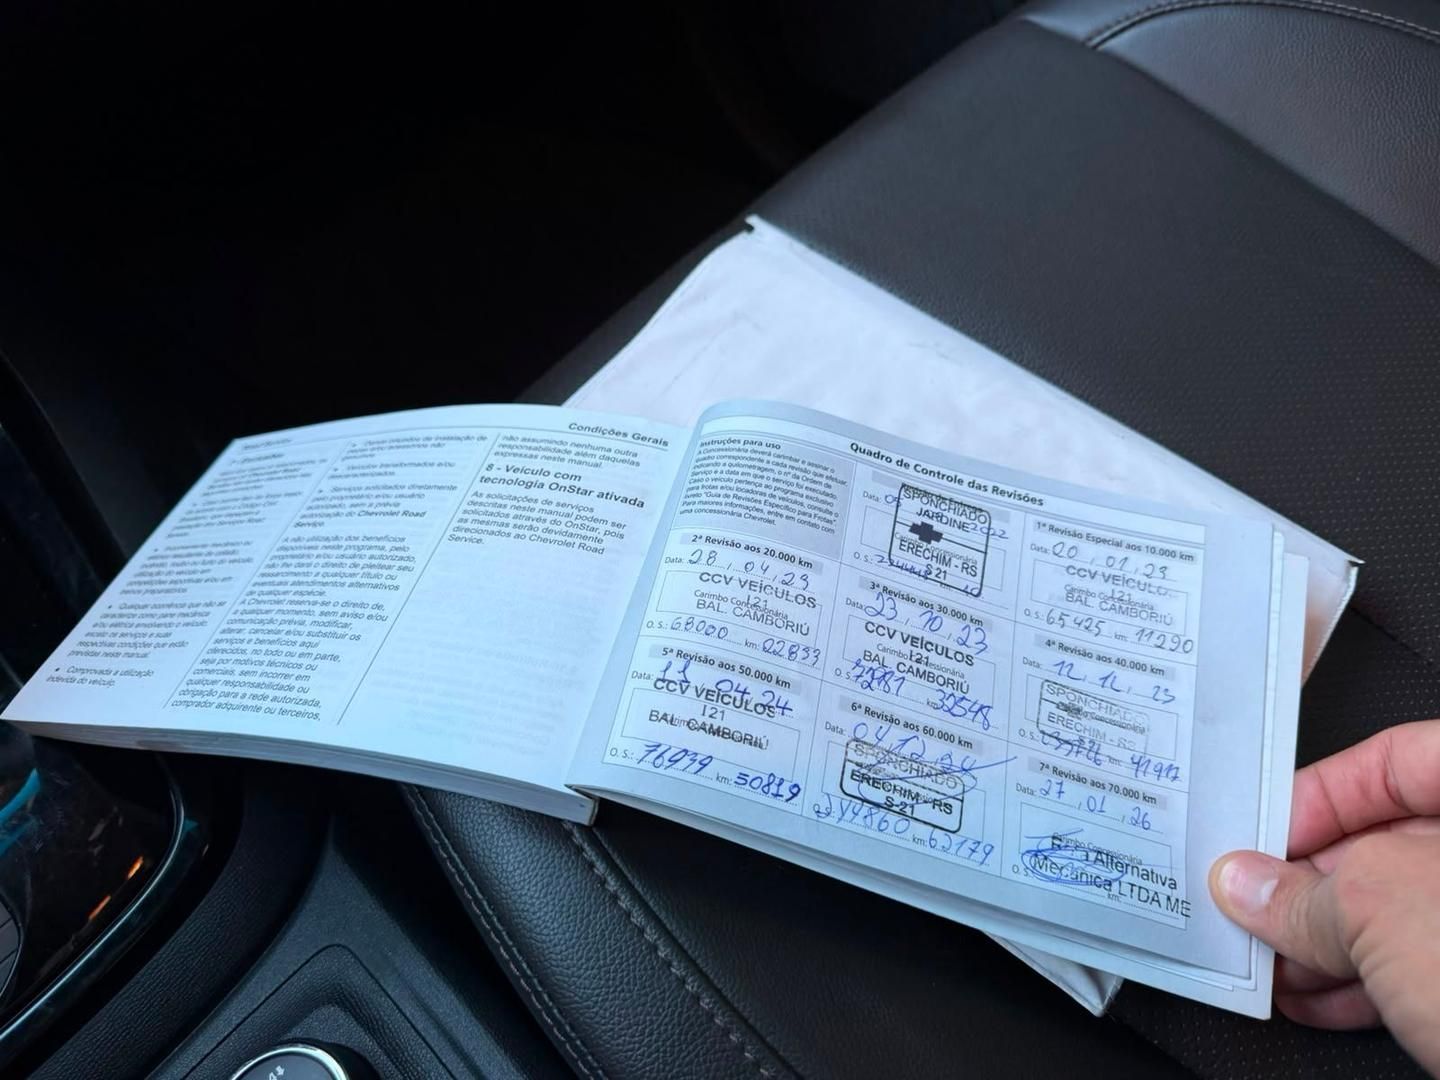 Condições Gerais
Outras oriundas de instalação de
peças e/ou acessórios não
Veículos transformados e/ou
descaracterizados.
Serviços solicitados diretamente
pelo proprietário e/ou usuário
autorizado, sem a prévia
autorização do Chevrolet Road
Service.
A não utilização dos benefícios
disponíveis neste programa, pelo
proprietário e/ou usuário autorizado,
não lhe dará o direito de pleitear seu
ressarcimento a qualquer título ou
eventuais atendimentos alternativos
de qualquer espécie.
A Chevrolet reserva-se o direito de,
a qualquer momento, sem aviso e/ou
comunicação prévia, modificar,
alterar, cancelar e/ou substituir os
serviços e benefícios aqui
oferecidos, no todo ou em parte,
seja por motivos técnicos ou
comerciais, sem incorrer em
qualquer responsabilidade ou
obrigação para a rede autorizada,
comprador adquirente ou terceiros,
• Qualquer ocorrência que não se
caracterize como pane mecânica
e/ou elétrica envolvendo o veículo,
exceto os serviços e suas
respectivas condições que estão
previstas neste manual.
• Comprovada a utilização
indevida do veículo.
não assumindo nenhuma outra
responsabilidade além daquelas
expressas neste manual.
8 - Veículo com
tecnologia OnStar ativada
As solicitações de serviços
descritas neste manual podem ser
solicitados através do OnStar, pois
as mesmas serão devidamente
direcionados ao Chevrolet Road
Service.
Quadro de Controle das Revisões
Instruções para uso
A Concessionária deverá carimbar e assinar o
quadro correspondente a cada revisão que efetuar,
indicando a quilometragem, o nº da Ordem de
Serviço e a data em que o serviço foi executado.
Caso o veículo pertença ao programa exclusivo
para frotas e/ou locadoras de veículos, consulte o
livreto "Guia de Revisões Específico para Frotas"
Para maiores informações, entre em contato com
uma concessionária Chevrolet.
Data: 2022
SPONCHIADO
JARDINE
Carimbo Concessionária
ERECHIM - RS
S 21
O. S.:
1ª Revisão Especial aos 10.000 km
Data: 20 , 01 , 23
CCV VEÍCULOS
Carimbo Concessionária
I21
BAL. CAMBORIÚ
O. S.: 65425 km: 11290
2ª Revisão aos 20.000 km
Data: 28 , 04 , 23
CCV VEÍCULOS
Carimbo Concessionária
I21
BAL. CAMBORIÚ
O. S.: 68000 km: 22833
3ª Revisão aos 30.000 km
Data: 23 , 10 , 23
CCV VEÍCULOS
Carimbo Concessionária
I21
BAL. CAMBORIÚ
O. S.: 32548
4ª Revisão aos 40.000 km
Data: 12 , 12 , 23
SPONCHIADO
Carimbo Concessionária
ERECHIM - RS
S-21
O. S.: km: 41917
5ª Revisão aos 50.000 km
Data: 11 , 04 , 24
CCV VEÍCULOS
I21
BAL. CAMBORIÚ
O. S.: 76939 km: 50819
6ª Revisão aos 60.000 km
Data: 04 , 12 , 24
SPONCHIADO
ERECHIM - RS
S-21
244860 km: 62179
7ª Revisão aos 70.000 km
Data: 27 , 01 , 26
Carimbo Concessionária
Alternativa
O. S.: Mecânica LTDA ME
km: